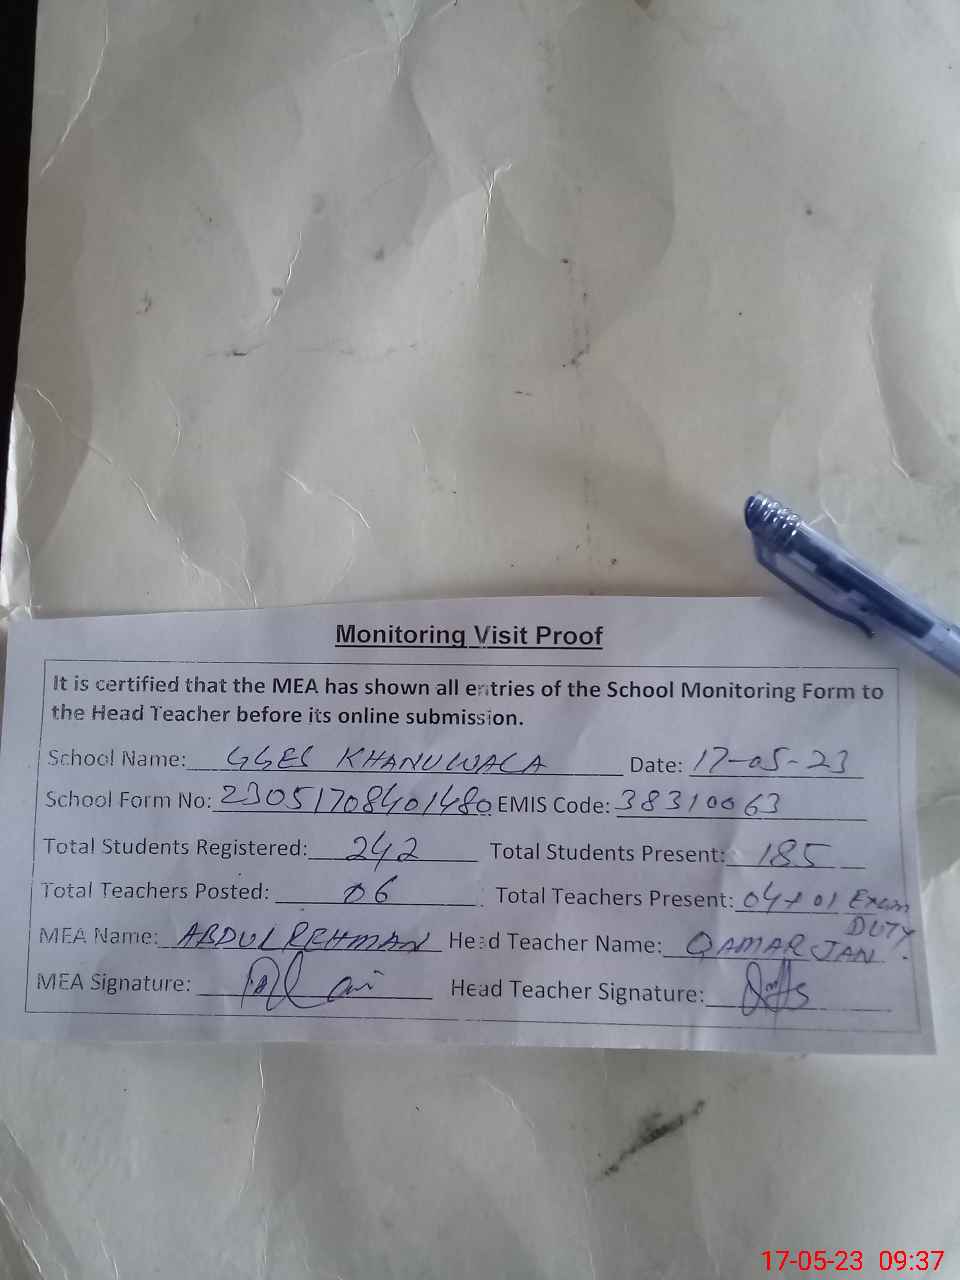 Monitoring Visit Proof
It is certified that the MEA has shown all entries of the School Monitoring Form to
the Head Teacher before its online submission.
School Name: GGES KHANUWALA Date: 17-05-23
School Form No: 23051708401480 EMIS Code: 38310063
Total Students Registered: 242 Total Students Present: 185
Total Teachers Posted: 06 Total Teachers Present: 04+01 Exam
DUTY.
MEA Name: ABDUL REHMAN Head Teacher Name: QAMAR JAN
MEA Signature: Head Teacher Signature:
17-05-23 09:37